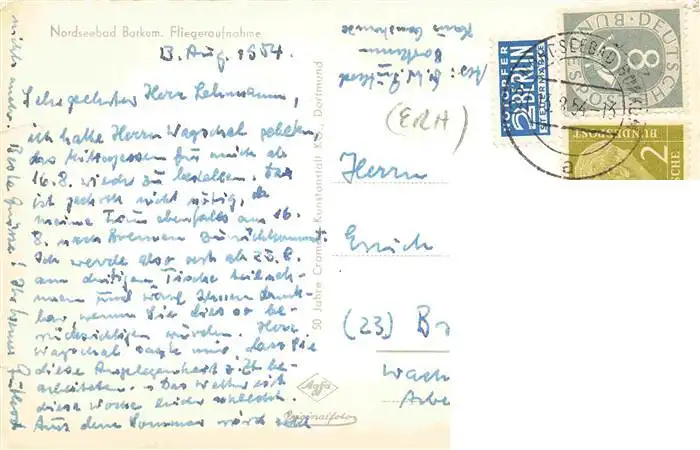 Nordseebad Borkum. Fliegeraufnahme
13. Aug. 1954.
Sehr geehrter Herr Lehmann,
ich hatte Herrn Wagschal gebeten
das Mittagessen für mich ab
16.8. wieder zu bestellen. Das
ist jedoch nicht nötig, da
meine Frau ebenfalls am 16.
8. nach Bremen zurückkommt.
Ich werde also erst ab 23.8.
am dortigen Tische teilneh-
men und wäre Ihnen dank-
bar wenn Sie dies so be-
rücksichtigen würden. Herr
Wagschal sagte mir, dass Sie
diese Angelegenheit z.Zt. be-
arbeiteten. Das Wetter ist
diese Woche leider schlecht.
Aus dem Sommer wird wohl
nichts mehr. Beste Grüsse! Ihr
50 Jahre Cramers Kunstanstalt KG., Dortmund
Agfa
Originalfoto
Abs:
Borkum
Haus
(ERH)
NOTOPFER
2 BERLIN
STEUERMARKE
DEUTSCHE
BUNDESPOST
8
NORDSEEBAD BORKUM
8.54.-13
a
2
DEUTSCHE
BUNDESPOST
Herrn
Errich
(23) Br
Wach
Arbe